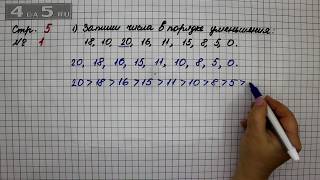 4GA5.RU
Стр. 5
№ 1
1) Запиши числа в порядке уменьшения:
18, 10, 20, 16, 11, 15, 8, 5, 0.
20, 18, 16, 15, 11, 10, 8, 5, 0.
20 > 18 > 16 > 15 > 11 > 10 > 8 > 5 >